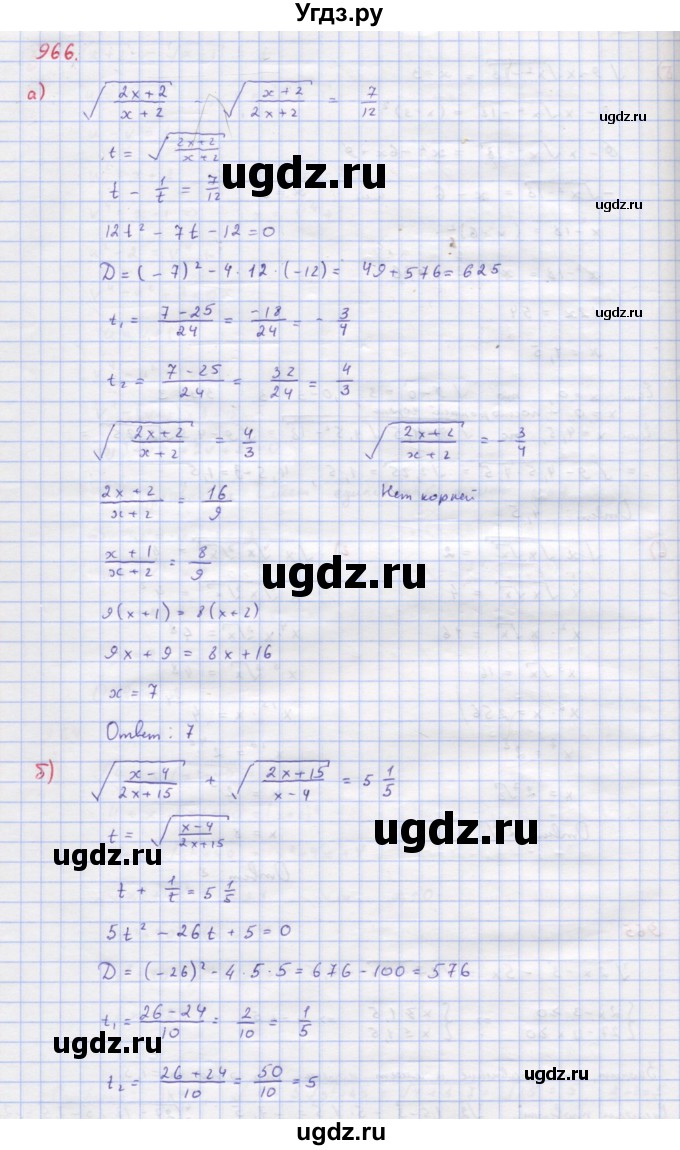 Угдз.ру
966.
а) √((2x+2)/(x+2)) - √((x+2)/(2x+2)) = 7/12
t = √((2x+2)/(x+2))
ugdz.ru
t - 1/t = 7/12
ugdz.ru
12t² - 7t - 12 = 0
D = (-7)² - 4·12·(-12) = 49 + 576 = 625
t₁ = (7-25)/24 = -18/24 = -3/4
ugdz.ru
t₂ = (7-25)/24 = 32/24 = 4/3
√((2x+2)/(x+2)) = 4/3 √((2x+2)/(x+2)) = -3/4
(2x+2)/(x+2) = 16/9 Нет корней
(x+1)/(x+2) = 8/9
ugdz.ru
ugdz.ru
9(x+1) = 8(x+2)
9x + 9 = 8x + 16
x = 7
Ответ: 7
б) √((x-4)/(2x+15)) + √((2x+15)/(x-4)) = 5 1/5
t = √((x-4)/(2x+15))
ugdz.ru
ugdz.ru
t + 1/t = 5 1/5
5t² - 26t + 5 = 0
D = (-26)² - 4·5·5 = 676 - 100 = 576
t₁ = (26-24)/10 = 2/10 = 1/5
ugdz.ru
t₂ = (26+24)/10 = 50/10 = 5
ugdz.ru
ugdz.ru